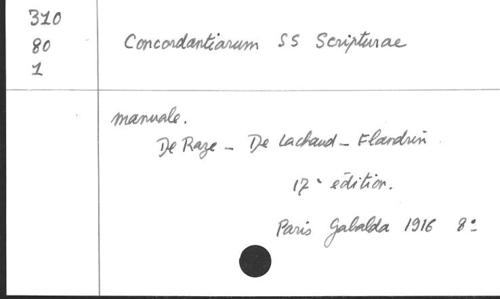 310
80
1
Concordantiarum SS Scripturae
manuale.
De Raze - De Lachaud - Flandrin
17e édition.
Paris Gabalda 1916 8º